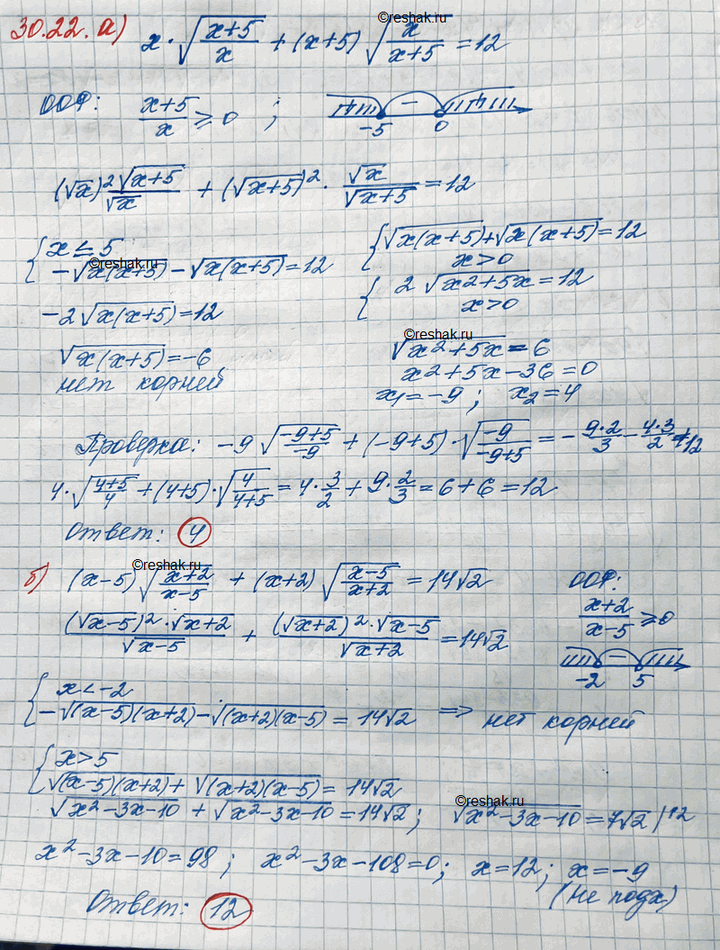 30.22. а) x·√((x+5)/x) + (x+5)√(x/(x+5)) = 12
©reshak.ru
ООФ: (x+5)/x ≥ 0 ; − -5 0
(√x)²√(x+5)/√x + (√(x+5))²·√x/√(x+5) = 12
{ x ≤ 5
-√(x(x+5)) - √(x(x+5)) = 12
©reshak.ru
-2√(x(x+5)) = 12
√(x(x+5)) = -6
нет корней
{ √(x(x+5)) + √(x(x+5)) = 12
x>0
{ 2√(x²+5x) = 12
x>0
©reshak.ru
√(x²+5x) = 6
x²+5x-36=0
x₁=-9; x₂=4
Проверка: -9√((-9+5)/-9) + (-9+5)·√(-9/(-9+5)) = -9·2/3 - 4·3/2 ≠ 12
4·√((4+5)/4) + (4+5)·√(4/(4+5)) = 4·3/2 + 9·2/3 = 6+6 = 12
Ответ: 4
©reshak.ru
б) (x-5)√((x+2)/(x-5)) + (x+2)√((x-5)/(x+2)) = 14√2
ООФ:
(x+2)/(x-5) ≥ 0
− -2 5
(√(x-5))²·√(x+2)/√(x-5) + (√(x+2))²·√(x-5)/√(x+2) = 14√2
{ x<-2
-√((x-5)(x+2)) - √((x+2)(x-5)) = 14√2 => нет корней
{ x>5
√((x-5)(x+2)) + √((x+2)(x-5)) = 14√2
©reshak.ru
√(x²-3x-10) + √(x²-3x-10) = 14√2; √(x²-3x-10) = 7√2 |↑2
x²-3x-10=98; x²-3x-108=0; x=12; x=-9
(не подх)
Ответ: 12